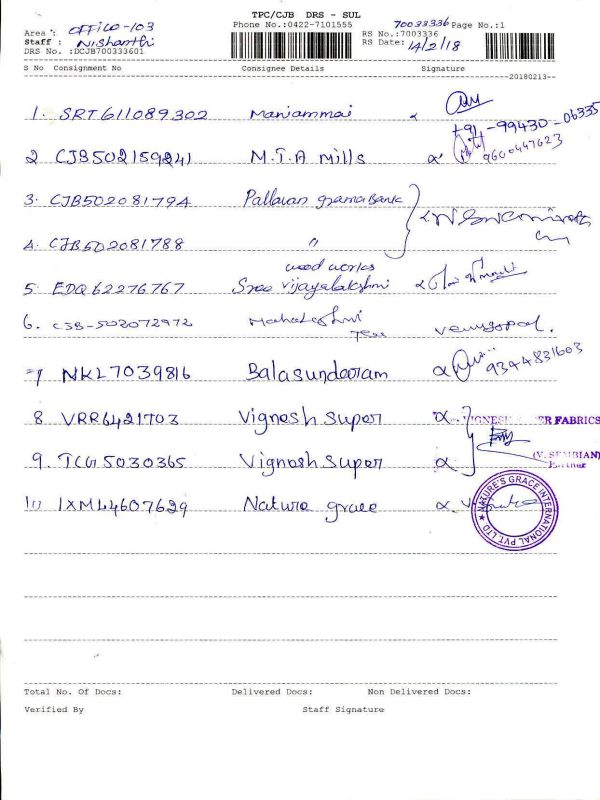 TPC/CJB DRS - SUL
Area : OFFICO-103 Phone No.:0422-7101555 70033336 Page No.:1
Staff : Nishanthi RS No.:7003336
DRS No. :DCJB700333601 RS Date: 14/2/18
S No Consignment No Consignee Details Signature
--20180213--
1. SRT611089302 Maniammai
+91-99430-06335
2 CJB502159241 M.T.A Mills 9600447623
3. CJB502081794 Pallavan grama Bank
4. CJB502081788 "
wood works
5. EDQ62276767 Sree vijayalakshmi
6. CJB-502072972 Mahalashmi Venugopal.
Tex
7 NKL7039816 Balasundaram 9344831603
8 VRR6421703 Vignesh Super VIGNESH SUPER FABRICS
9. TCG15030365 Vignesh Super (V. SEMBIAN)
Partner
10 IXM44607629 Nature grace
NATURE'S GRACE INTERNATIONAL PVT. LTD.
Total No. Of Docs: Delivered Docs: Non Delivered Docs:
Verified By Staff Signature